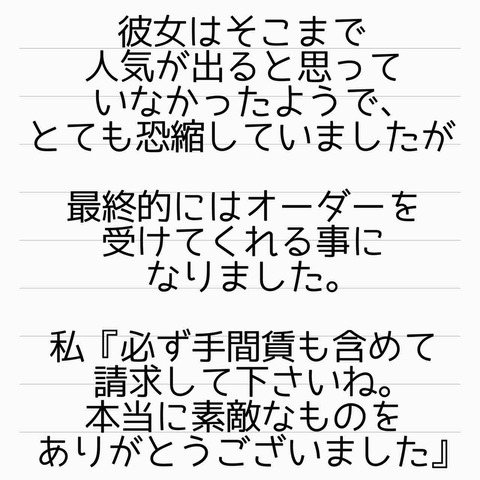 彼女はそこまで
人気が出ると思って
いなかったようで、
とても恐縮していましたが
最終的にはオーダーを
受けてくれる事に
なりました。
私『必ず手間賃も含めて
請求して下さいね。
本当に素敵なものを
ありがとうございました』